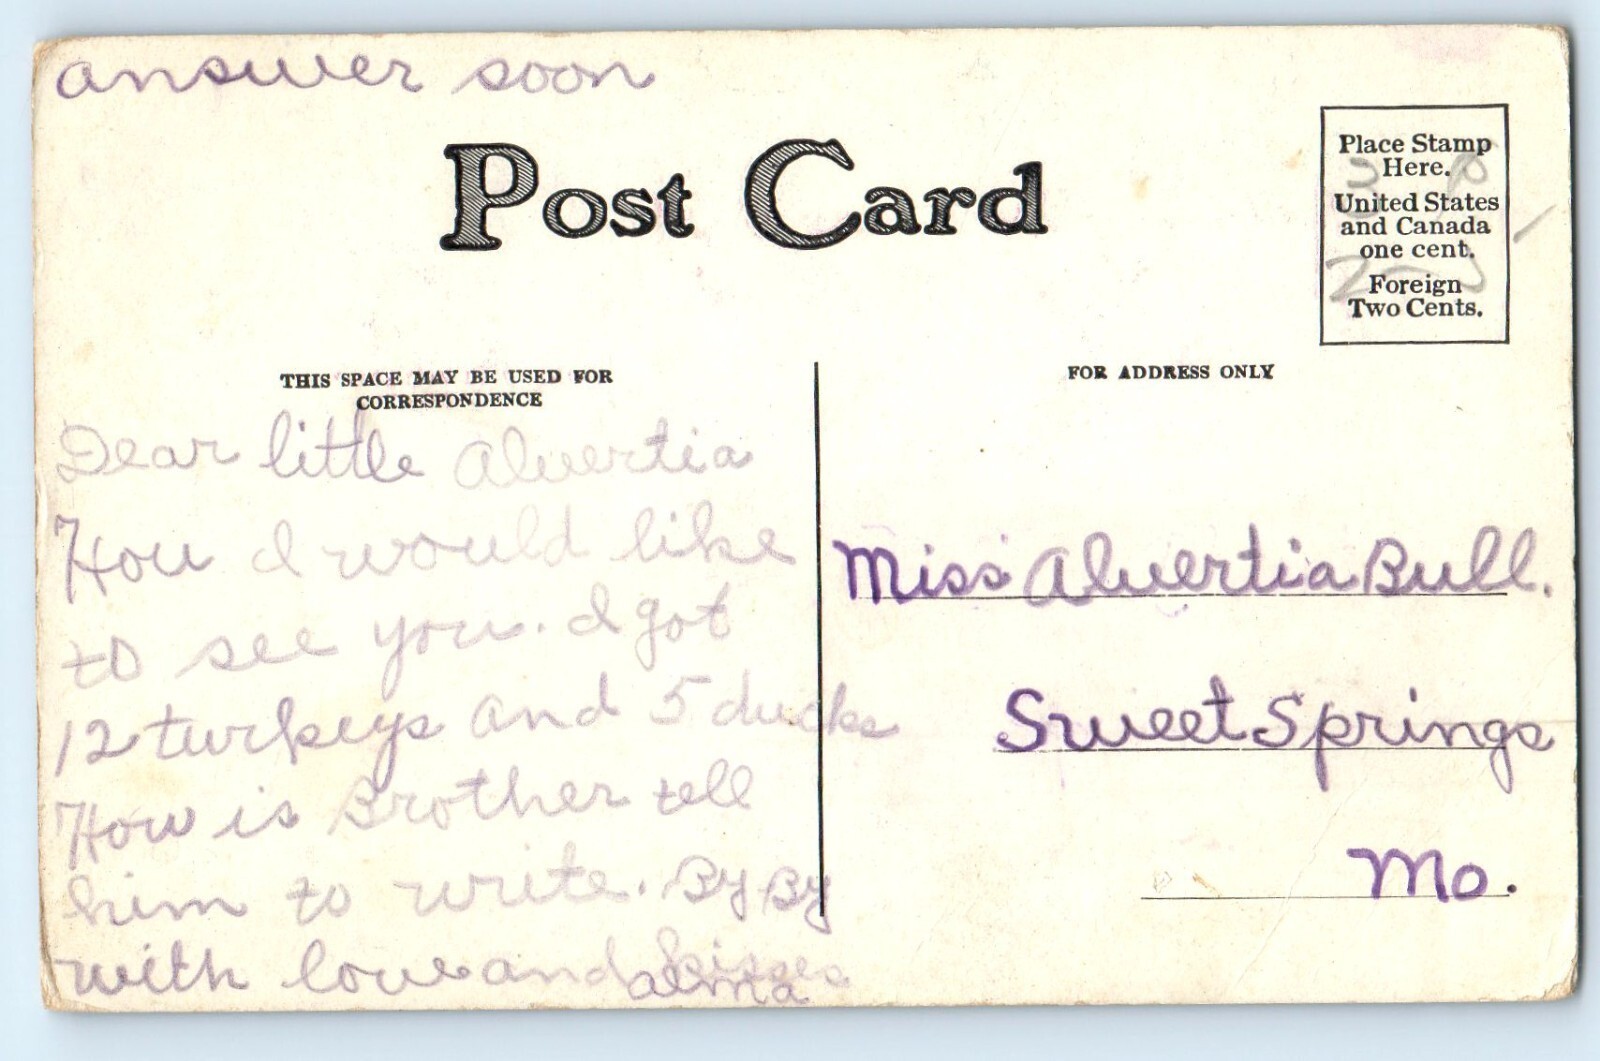 answer soon
Post Card
Place Stamp
Here.
United States
and Canada
one cent.
Foreign
Two Cents.
THIS SPACE MAY BE USED FOR
CORRESPONDENCE
FOR ADDRESS ONLY
Dear little Alvertia
How I would like
to see you. I got
12 turkeys and 5 ducks
How is Brother tell
him to write. By By
with love and kisses
alma
Miss Alvertia Bull.
Sweet Springs
Mo.